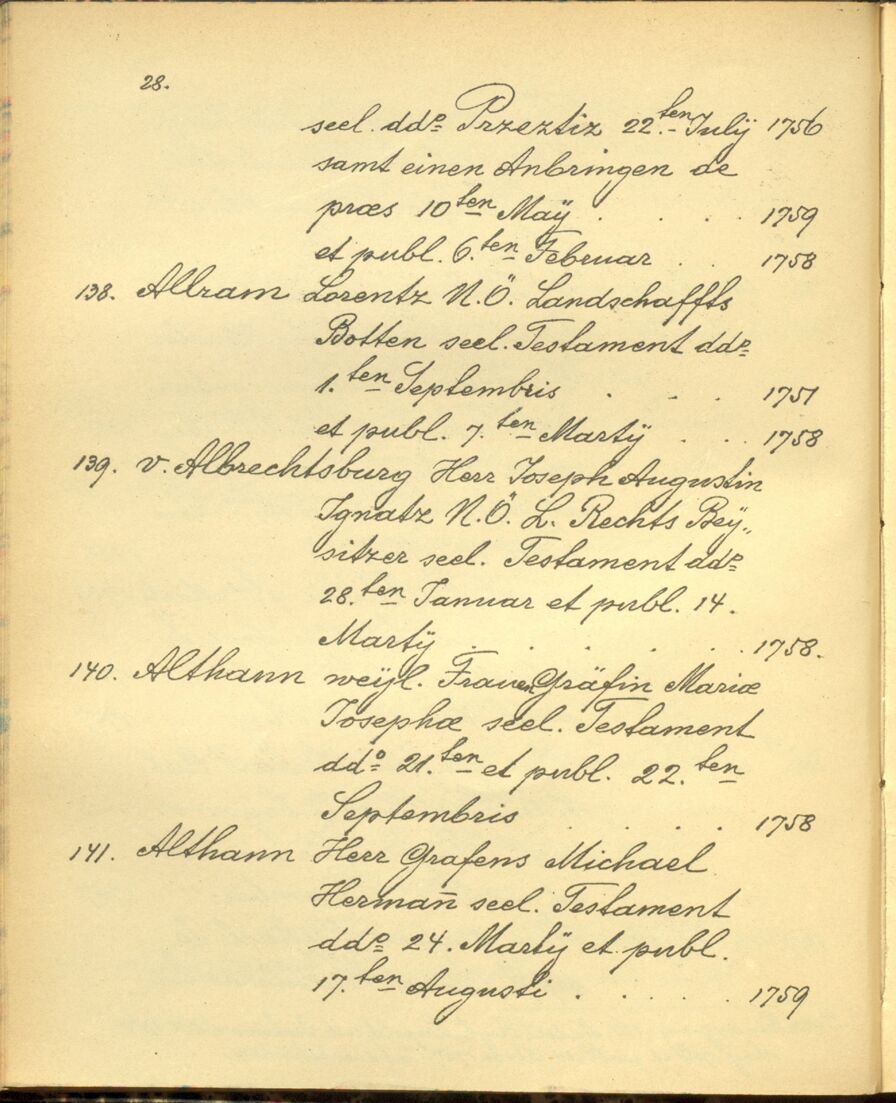 28.
seel. ddº Przeztiz 22.ten Julÿ 1756
samt einen Anbringen de
præs 10ten Maÿ . . . 1759
et publ. 6.ten Februar . . 1758
138. Allram Lorentz N.Ö. Landschaffts
Botten seel. Testament ddº
1.ten Septembris . . . 1751
et publ. 7.ten Martÿ . . . 1758
139. v. Albrechtsburg Herr Joseph Augustin
Ignatz N.Ö. L. Rechts Beÿ„
sitzer seel. Testament ddº
28.ten Januar et publ. 14.
Martÿ . . . . . . 1758.
140. Althann weÿl. Frauen Gräfin Mariæ
Josephæ seel. Testament
ddº 21.ten et publ. 22.ten
Septembris . . . . 1758
141. Althann Herr Grafens Michael
Herman̄ seel. Testament
ddº 24. Martÿ et publ.
17.ten Augusti . . . . 1759